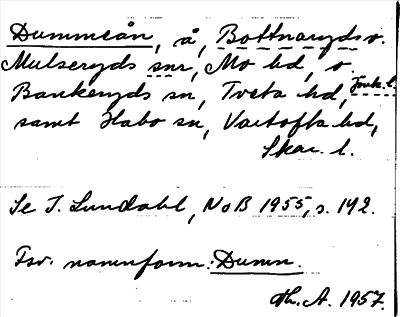 Dummeån, å, Bottnaryds o.
Mulseryds snr, Mo hd, o.
Bankeryds sn, Tveta hd, Jönk. l.
samt Habo sn, Vartofta hd,
Skar. l.
Se I. Lundahl, NoB 1955, s. 192.
Fsv. namnform: Dumn.
Th. A. 1957.